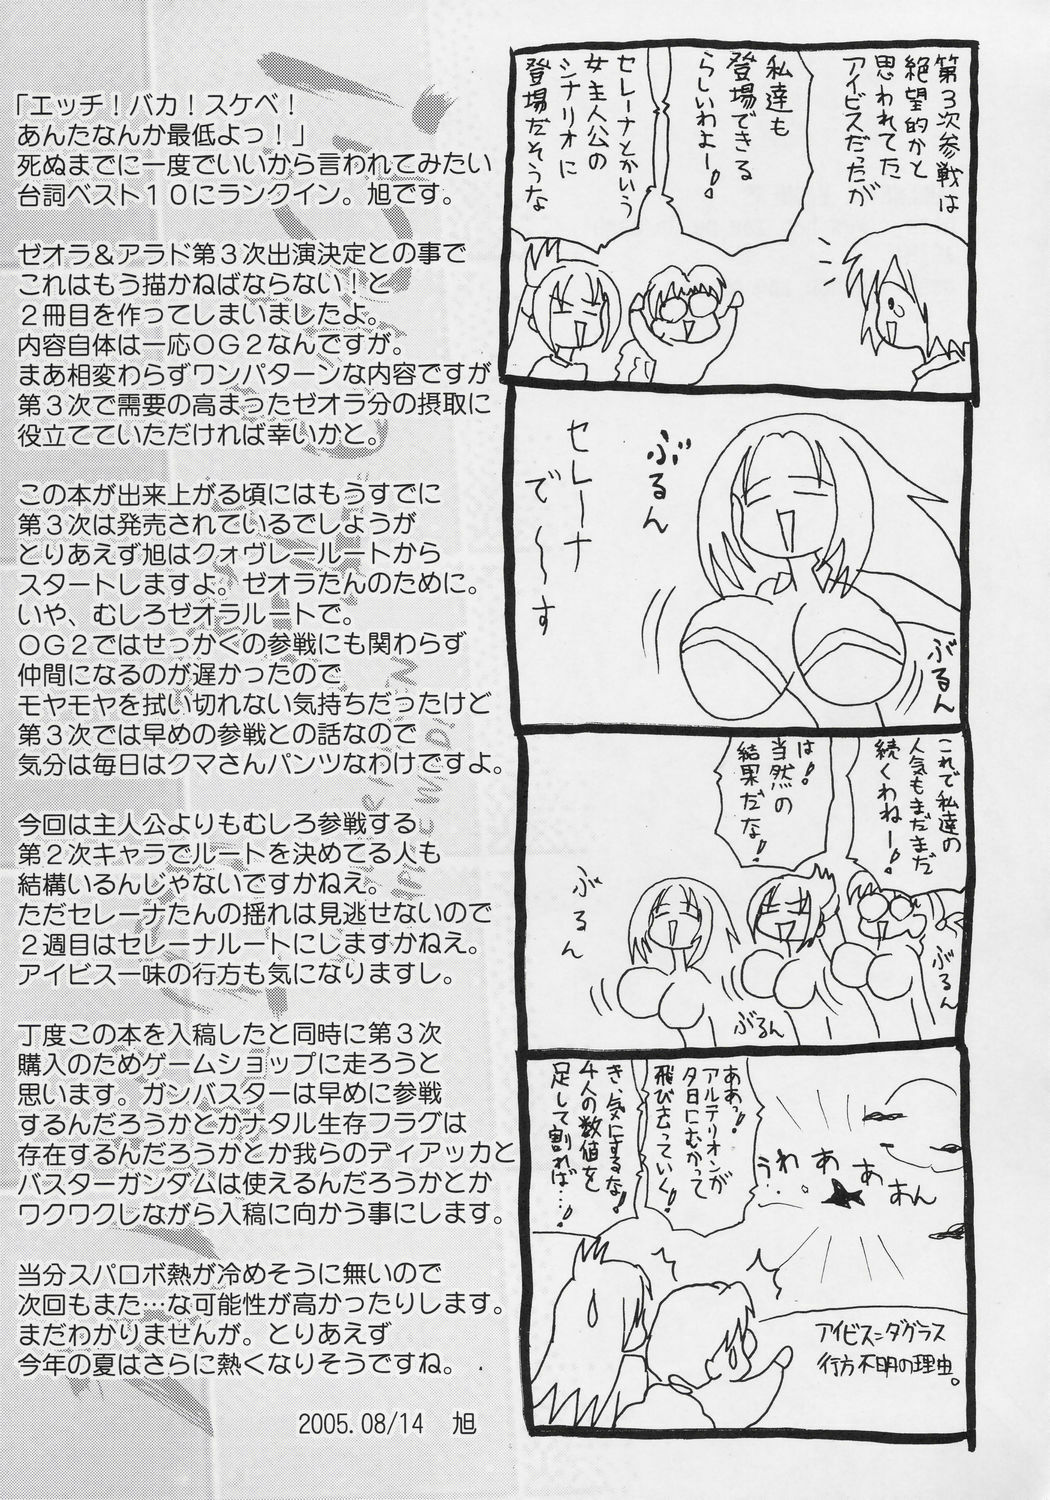 「エッチ！バカ！スケベ！
あんたなんか最低よっ！」
死ぬまでに一度でいいから言われてみたい
台詞ベスト１０にランクイン。旭です。
ゼオラ＆アラド第３次出演決定との事で
これはもう描かねばならない！と
２冊目を作ってしまいましたよ。
内容自体は一応ＯＧ２なんですが。
まあ相変わらずワンパターンな内容ですが
第３次で需要の高まったゼオラ分の摂取に
役立てていただければ幸いかと。
この本が出来上がる頃にはもうすでに
第３次は発売されているでしょうが
とりあえず旭はクォヴレールートから
スタートしますよ。ゼオラたんのために。
いや、むしろゼオラルートで。
ＯＧ２ではせっかくの参戦にも関わらず
仲間になるのが遅かったので
モヤモヤを拭い切れない気持ちだったけど
第３次では早めの参戦との話なので
気分は毎日はクマさんパンツなわけですよ。
今回は主人公よりもむしろ参戦する
第２次キャラでルートを決めてる人も
結構いるんじゃないですかねえ。
ただセレーナたんの揺れは見逃せないので
２週目はセレーナルートにしますかねえ。
アイビス一味の行方も気になりますし。
丁度この本を入稿したと同時に第３次
購入のためゲームショップに走ろうと
思います。ガンバスターは早めに参戦
するんだろうかとかナタル生存フラグは
存在するんだろうかとか我らのディアッカと
バスターガンダムは使えるんだろうかとか
ワクワクしながら入稿に向かう事にします。
当分スパロボ熱が冷めそうに無いので
次回もまた…な可能性が高かったりします。
まだわかりませんが。とりあえず
今年の夏はさらに熱くなりそうですね。
2005.08/14　旭
第３次参戦は
絶望的かと
思われてた
アイビスだったが
私達も
登場できる
らしいわよー！
セレーナとかいう
女主人公の
シナリオに
登場だそうな
ぶるん
セレーナ
で〜す
ぶるん
これで私達の
人気もまだまだ
続くわねー！
は！
当然の
結果だな！
ぶるん
ぶるん
ぶるん
ああっ！
アルテリオンが
夕日にむかって
飛び去っていく！
き、気にするな！
４人の数値を
足して割れば…！
うわぁぁぁん
アイビス=ダグラス
行方不明の理由。